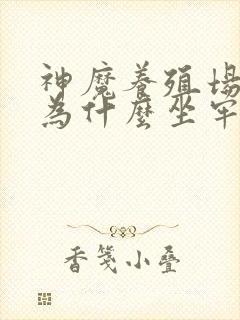 神魔養殖場
為什麼坐牢
香箋小疊